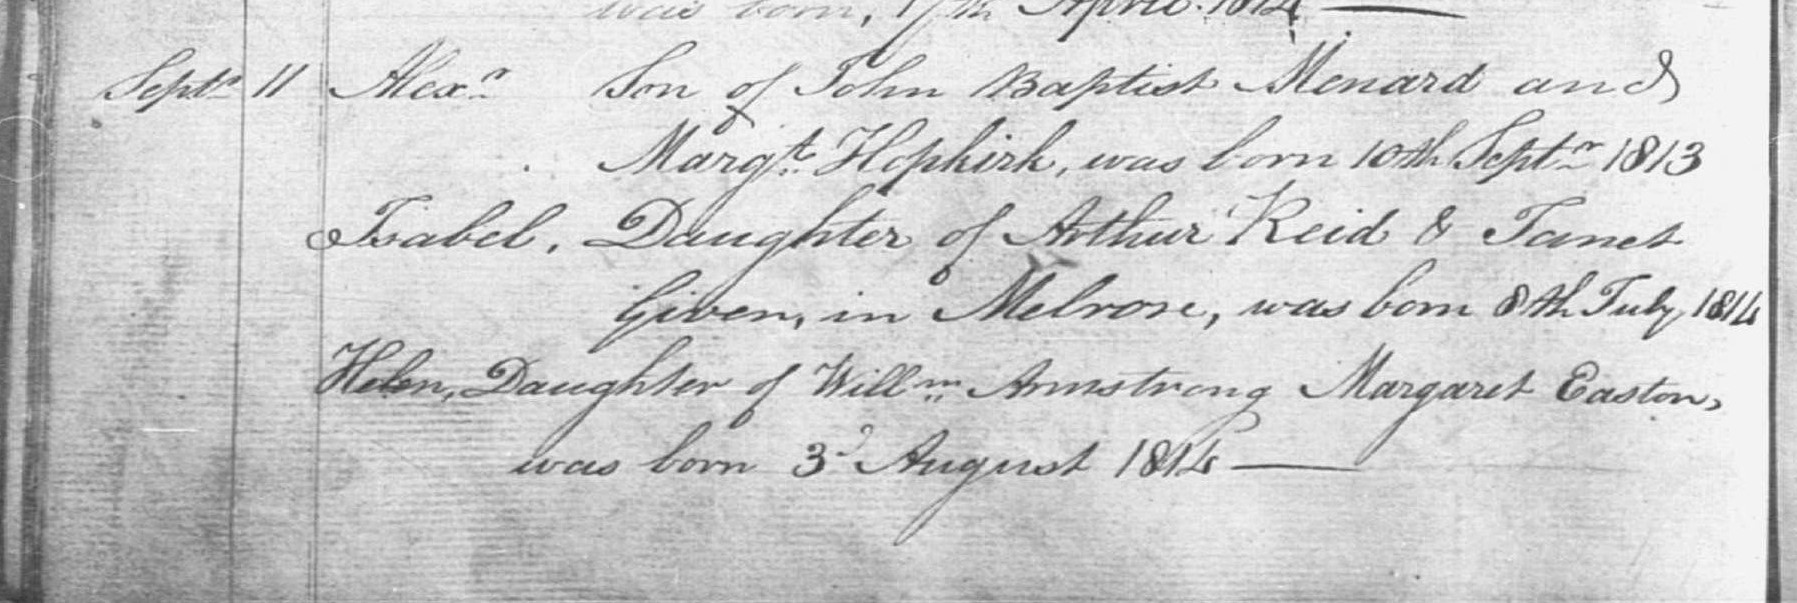 was born, 17th April 1814
Septr 11 Alexr Son of John Baptist Menard and
Margt. Hopkirk, was born 10th Septr 1813
Isabel, Daughter of Arthur Reid & Janet
Given, in Melrose, was born 8th July 1814
Helen, Daughter of Willm Armstrong Margaret Easton,
was born 3d August 1814